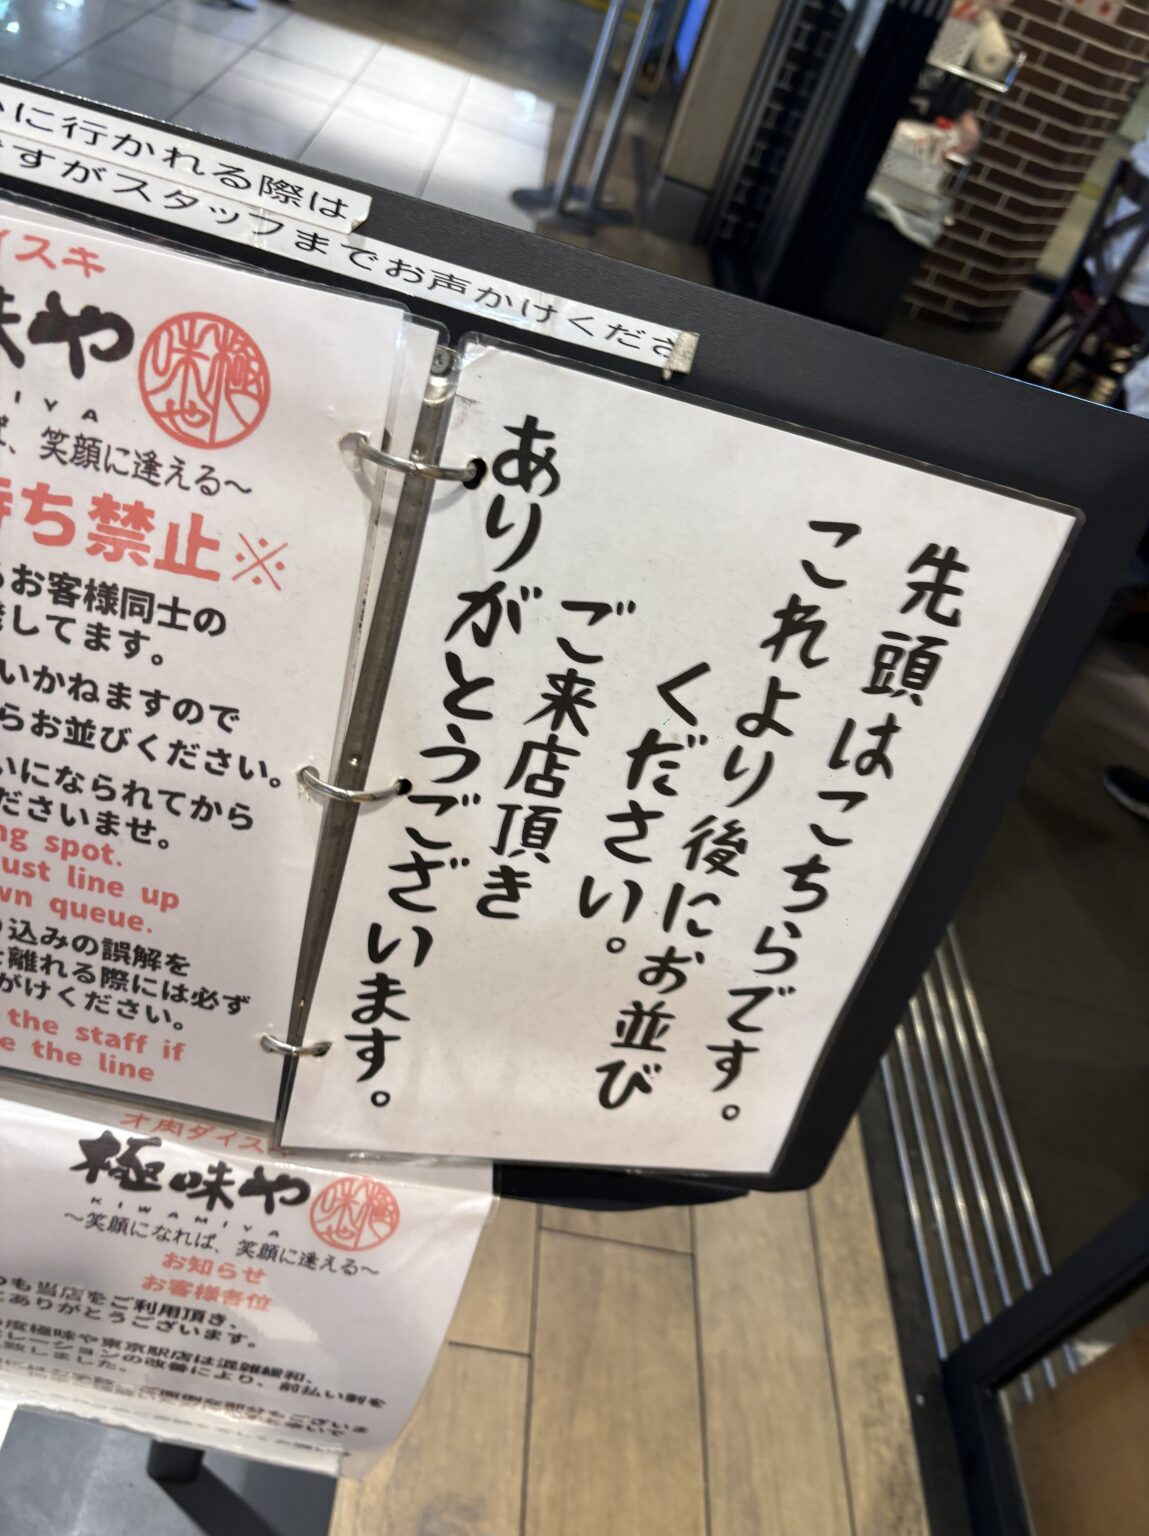 に行かれる際は
ですがスタッフまでお声かけくださ
イスキ
味や
I Y A
極味や
、笑顔に逢える〜
待ち禁止※
お客様同士の
してます。
いかねますので
らお並びください。
いになられてから
ださいませ。
ng spot.
ust line up
wn queue.
り込みの誤解を
離れる際には必ず
がけください。
the staff if
e the line
先頭はこちらです。
これより後にお並び
ください。
ご来店頂き
ありがとうございます。
オ肉ダイスキ
極味や
極味や
KIWAMIYA
〜笑顔になれば、笑顔に逢える〜
お知らせ
お客様各位
も当店をご利用頂き、
ありがとうございます。
度極味や東京駅店は混雑緩和、
レーションの改善により、前払い制を
致しました。